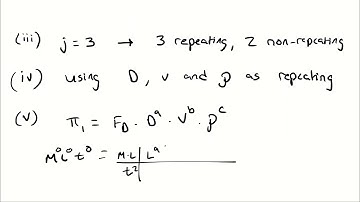 (iii) j = 3 → 3 repeating, 2 non-repeating
(iv) using D, v and ρ as repeating
(v) π₁ = F_D · D^a · v^b · ρ^c
M⁰L⁰t⁰ = M·L/t² | L^a ·